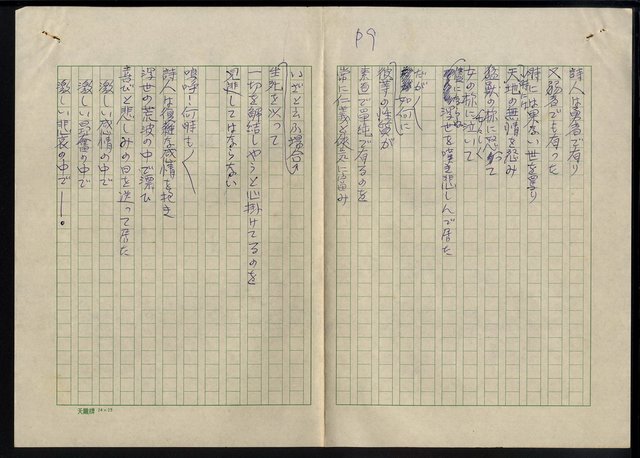 P9
詩人は勇者で有り
又弱者でも有った
時には果ない世を罵り
時には
天地の無情を怨み
猛獣の様に怒って
女の様に泣いて
浮世を嘆き悲しんで居た
だが
如何に
彼等の性質が
素直で単純で有るのを
常に仁義と
いざと云ふ場合の
生死を以って
一切を解結しやうと心掛けてるのを
見逃してはならない
嗚呼！何時も
詩人は復雑な感情を抱き
浮世の荒波の中で漂ひ
喜びと悲しみの日を送って居た
激しい感情の中で
激しい昂奮の中で
激しい悲哀の中で——。
天鵝牌 24×25